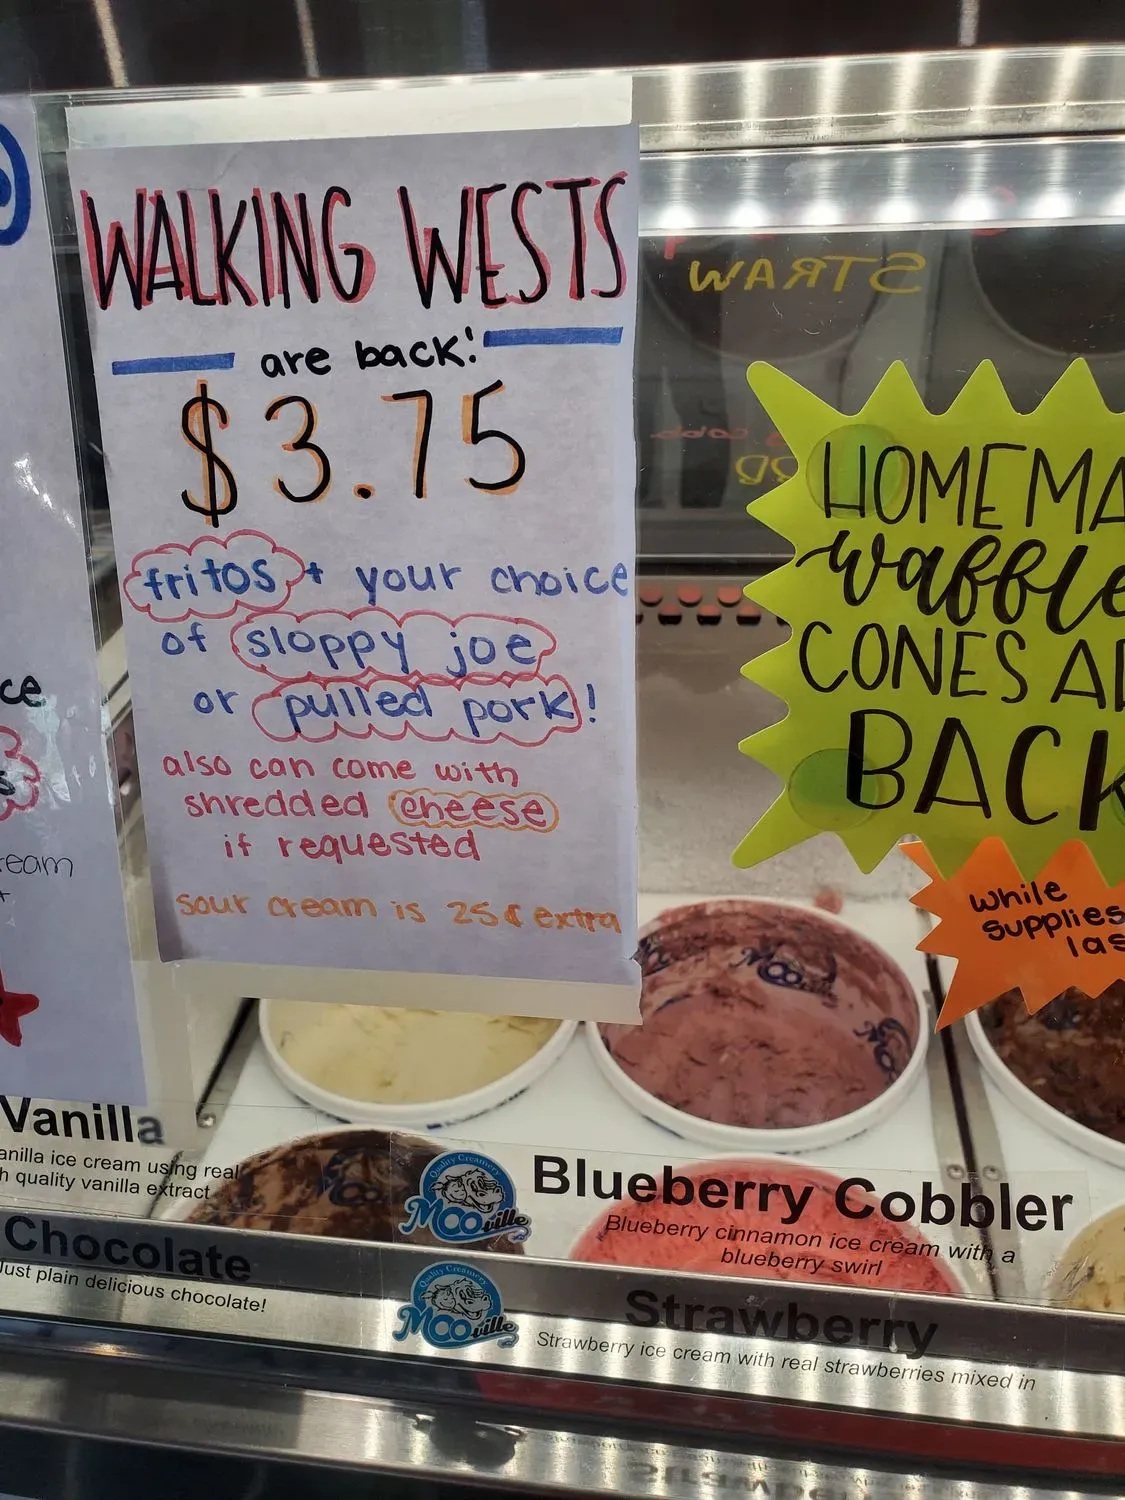 WALKING WESTS
are back!
$3.75
fritos + your choice
of sloppy joe
or pulled pork!
also can come with
shredded cheese
if requested
sour cream is 25¢ extra
ce
s
ream
+
STRAW
HOMEMA
waffle
CONES A
BACK
while
supplies
las
Vanilla
anilla ice cream using real
h quality vanilla extract
Chocolate
Just plain delicious chocolate!
Quality Creamery
MOOville
Blueberry Cobbler
Blueberry cinnamon ice cream with a
blueberry swirl
Quality Creamery
MOOville
Strawberry
Strawberry ice cream with real strawberries mixed in
MOO